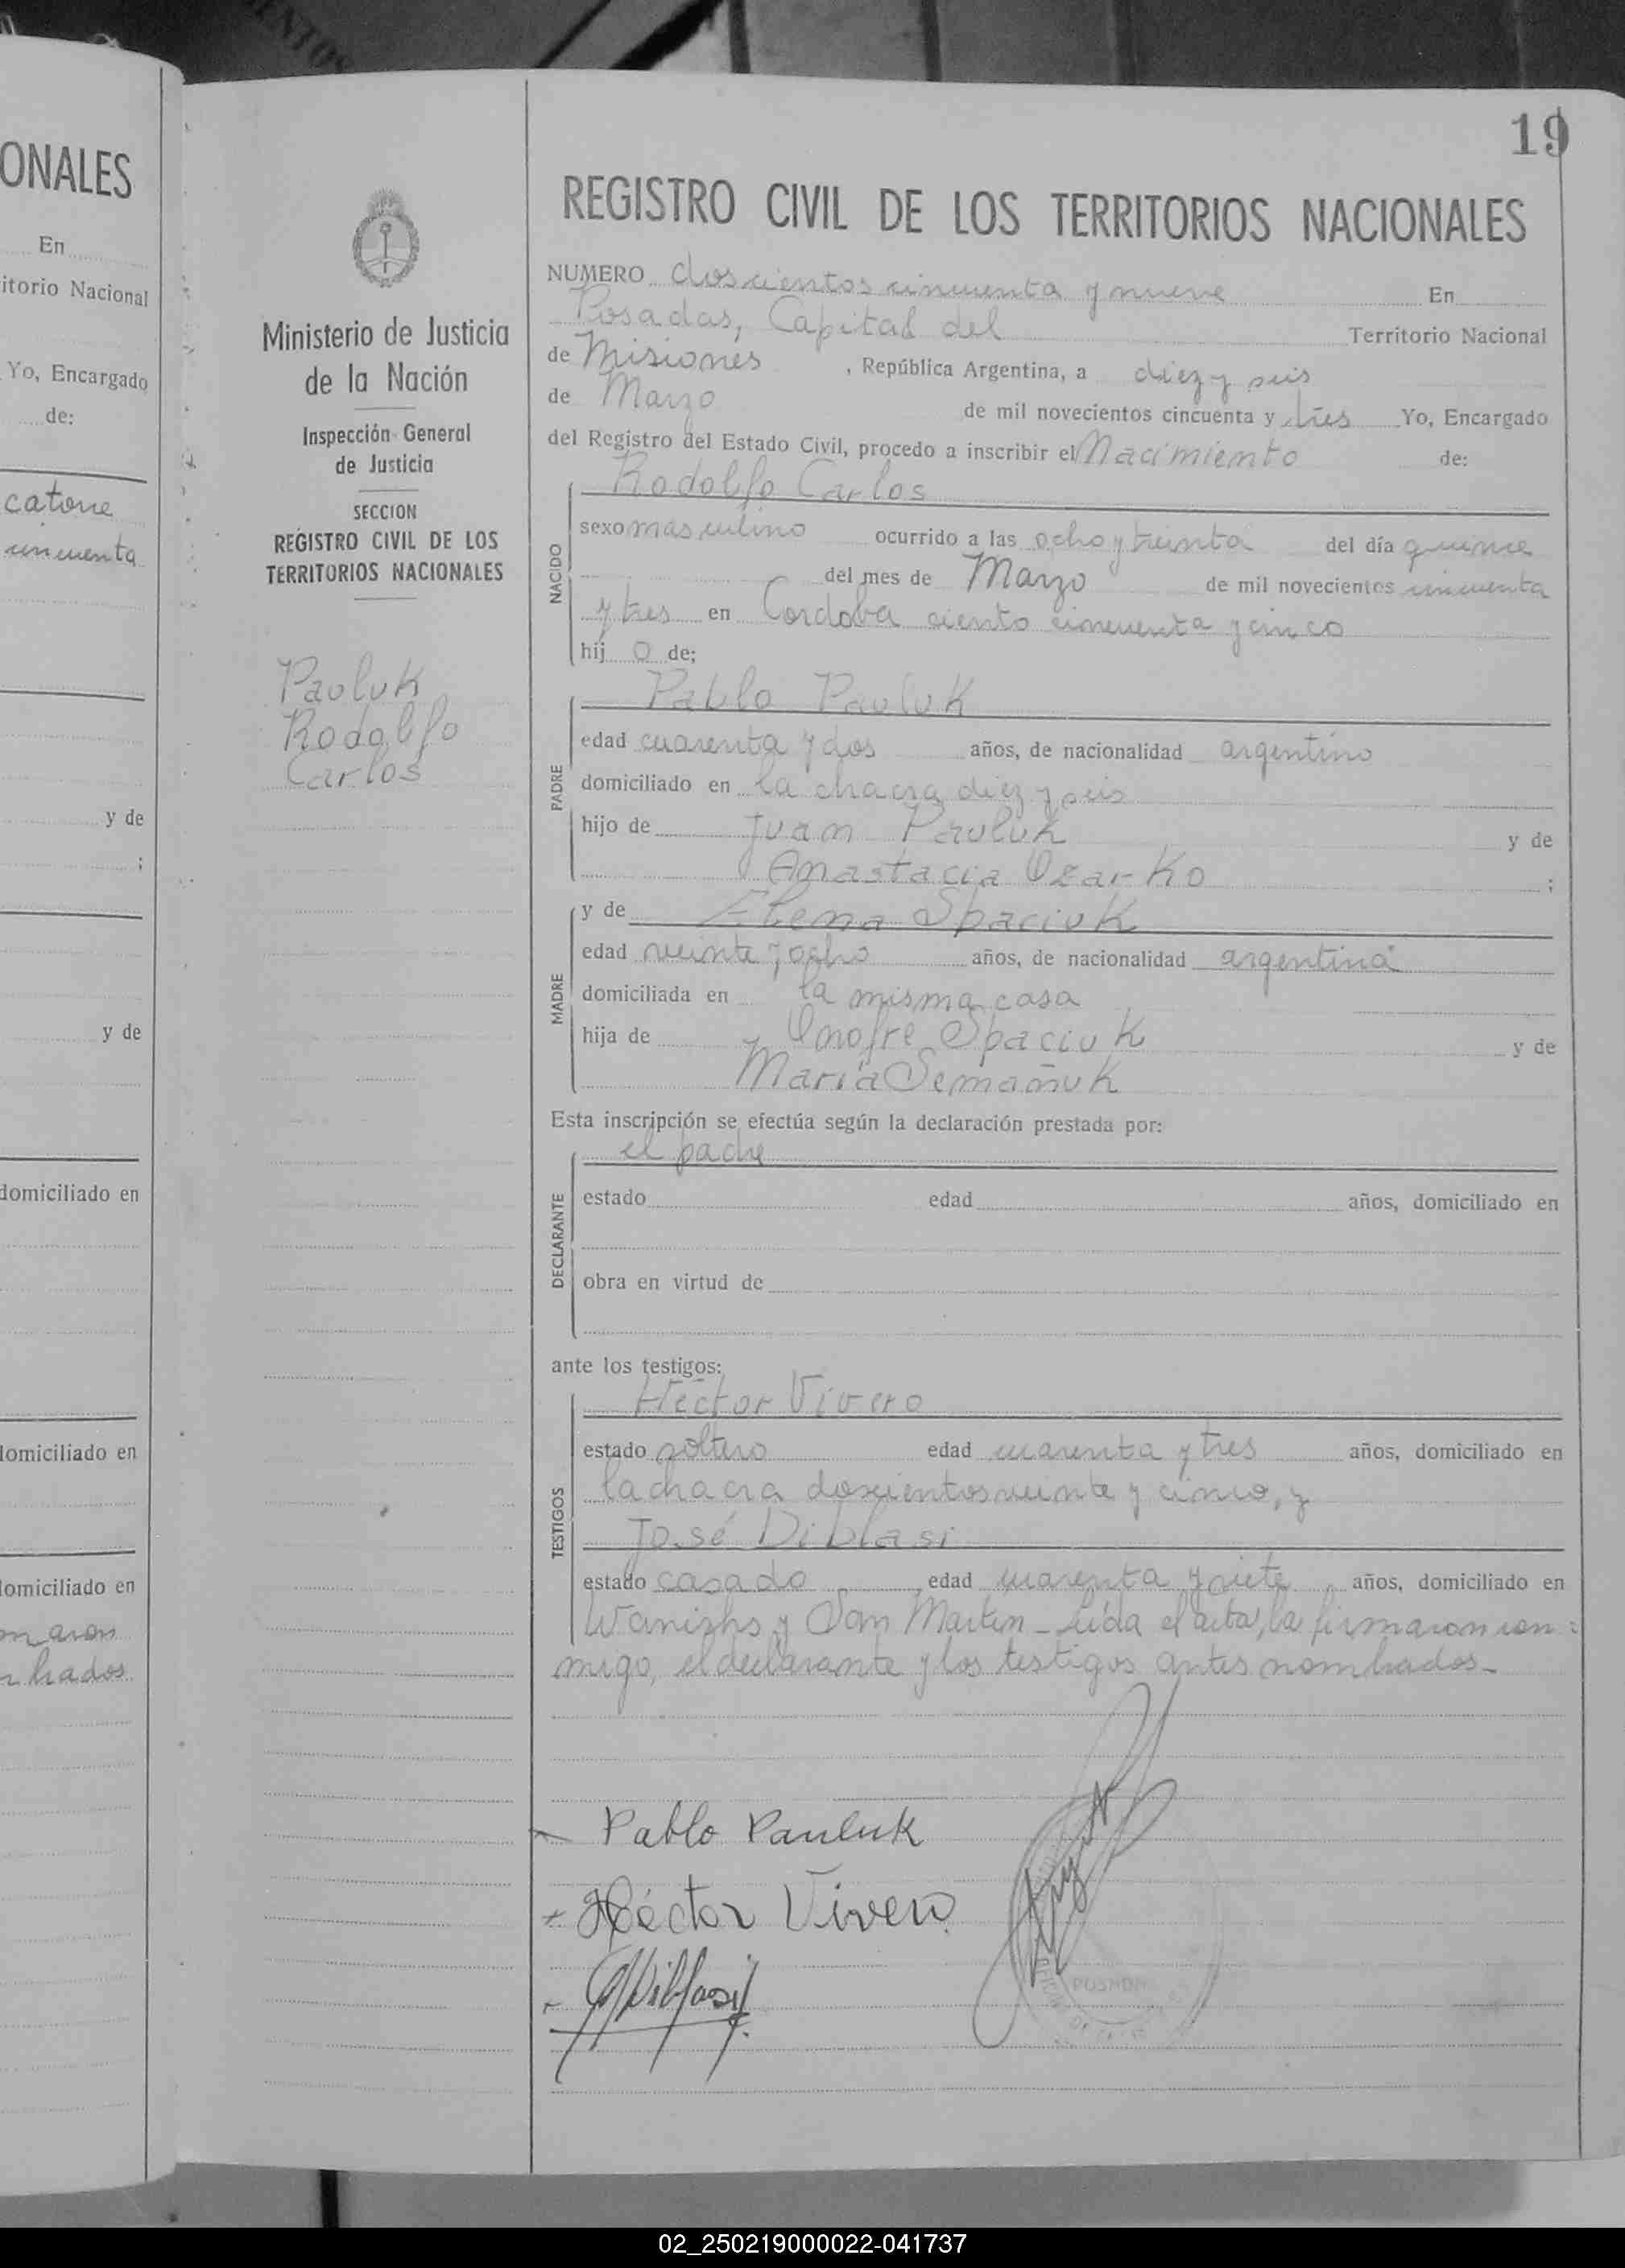 ONALES
En
itorio Nacional
Yo, Encargado
de:
catorce
cincuenta
y de
;
y de
domiciliado en
domiciliado en
domiciliado en
maron
hados
MENTOS
19
Ministerio de Justicia
de la Nación
Inspección General
de Justicia
SECCION
REGISTRO CIVIL DE LOS
TERRITORIOS NACIONALES
Pauluk
Rodolfo
Carlos
REGISTRO CIVIL DE LOS TERRITORIOS NACIONALES
NUMERO doscientos cincuenta y nueve En
Posadas, Capital del Territorio Nacional
de Misiones , República Argentina, a diez y seis
de Marzo de mil novecientos cincuenta y tres Yo, Encargado
del Registro del Estado Civil, procedo a inscribir el Nacimiento de:
NACIDO
Rodolfo Carlos
sexo masculino ocurrido a las ocho y treinta del día quince
del mes de Marzo de mil novecientos cincuenta
y tres en Cordoba ciento cincuenta y cinco
hij o de;
PADRE
Pablo Pauluk
edad cuarenta y dos años, de nacionalidad argentino
domiciliado en la chacra diez y seis
hijo de Juan Pauluk y de
Anastacia Ozarko ;
MADRE
y de Elena Spaciuk
edad veinte y ocho años, de nacionalidad argentina
domiciliada en la misma casa
hija de Onofre Spaciuk y de
María Semañuk
Esta inscripción se efectúa según la declaración prestada por:
DECLARANTE
el padre
estado edad años, domiciliado en
obra en virtud de
ante los testigos:
TESTIGOS
Héctor Vivero
estado soltero edad cuarenta y tres años, domiciliado en
la chacra doscientos veinte y cinco, y
José Diblasi
estado casado edad cuarenta y siete años, domiciliado en
Wanishs y San Martin - Leída el acta, la firmaron con=
migo, el declarante y los testigos antes nombrados-
Pablo Pauluk
Héctor Vivero
Diblasi
POSADAS
02_250219000022-041737